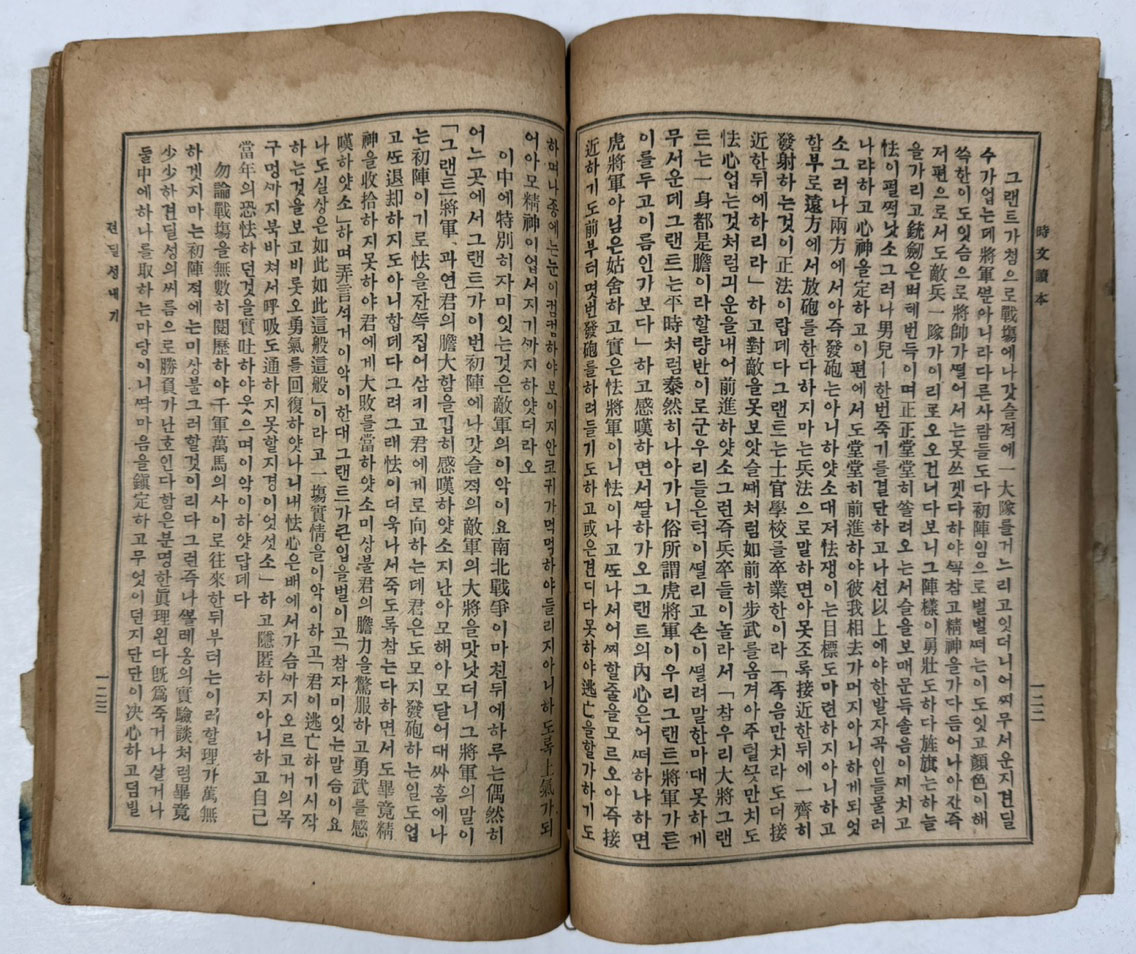 時文讀本
一二二
그랜트가청으로戰塲에나갓슬적에一大隊를거느리고잇더니어찌무서운지견딜
수가업는데將軍뿐아니라다른사람들도다初陣임으로벌벌떠는이도잇고顔色이해
쓱한이도잇슴으로將帥가떨어서는못쓰겟다하야꾹참고精神을가다듬어나아잔즉
저편으로서도敵兵一隊가이리로오오건너다보니그陣樣이勇壯도하다旌旗는하늘
을가리고銃劒은벼헤번득이며正正堂堂히쏠려오는서슬을보매문득솔음이세치고
怯이펄쩍낫소그러나男兒ㅣ한번죽기를결단하고나선以上에야한발자곡인들물러
나랴하고心神을定하고이편에서도堂堂히前進하야彼我相去가머지아니하게되엇
소그러나兩方에서아즉發砲는아니하얏소대저怯쟁이는目標도마련하지아니하고
함부로遠方에서放砲를한다하지마는兵法으로말하면아못조록接近한뒤에一齊히
發射하는것이正法이랍데다그랜트는士官學校를卒業한이라「족음만치라도더接
近한뒤에하리라」하고對敵을못보앗슬째처럼如前히步武를옴겨아주털끗만치도
怯心업는것처럼긔운을내어前進하얏소그런즉兵卒들이놀라서「참우리大將그랜
트는一身都是膽이라할량반이로군우리들은턱이떨리고손이떨려말한마대못하게
무서운데그랜트는平時처럼泰然히나아가니俗所謂虎將軍이우리그랜트將軍가튼
이를두고이름인가보다」하고感嘆하면서딸하가오그랜트의內心은어떠하냐하면
虎將軍아님은姑舍하고實은怯將軍이니怯이나고또나서어찌할줄을모르오아즉接
近하기도前부터몃번發砲를하려들기도하고或은견디다못하야逃亡을할가하기도
하며나종에는눈이컴컴하야보이지안코귀가먹먹하야들리지아니하도록上氣가되
어아모精神이업서지기까지하얏더라오
이中에特別히자미잇는것은敵軍의이악이요南北戰爭이마천뒤에하루는偶然히
어느곳에서그랜트가이번初陣에나갓슬적의敵軍의大將을맛낫더니그將軍의말이
「그랜트將軍、과연君의膽大함을깁히感嘆하얏소지난아모해아모달어대싸홈에나
는初陣이기로怯을잔뜩집어삼키고君에게로向하는데君은도모지發砲하는일도업
고또退却하지도아니합데다그려그래怯이더욱나서죽도록참는다하면서도畢竟精
神을收拾하지못하야君에게大敗를當하얏소미상불君의膽力을驚服하고勇武를感
嘆하얏소」하며弄言석거이악이한대그랜트가큰입을벌이고「참자미잇는말슴이요
나도실상은如此如此這般這般」이라고一塲實情을이악이하고「君이逃亡하기시작
하는것을보고비롯오勇氣를回復하얏나니내怯心은배에서가슴까지오르고거의목
구멍까지북바쳐서呼吸도通하지못할지경이엇섯소」하고隱匿하지아니하고自己
當年의恐怯하던것을實吐하야웃으며이악이하얏답데다
勿論戰塲을無數히閱歷하야千軍萬馬의사이로往來한뒤부터는이러할理가萬無
하겟지마는初陣적에는미상불그러할것이리다그런즉나뽈레옹의實驗談처럼畢竟
少少하견딜성의씨름으로勝負가난호인다함은분명한眞理윈다旣爲죽거나살거나
둘中에하나를取하는마당이니딱마음을鎭定하고무엇이던지단단이决心하고덤빌
견딜성내기
一二三